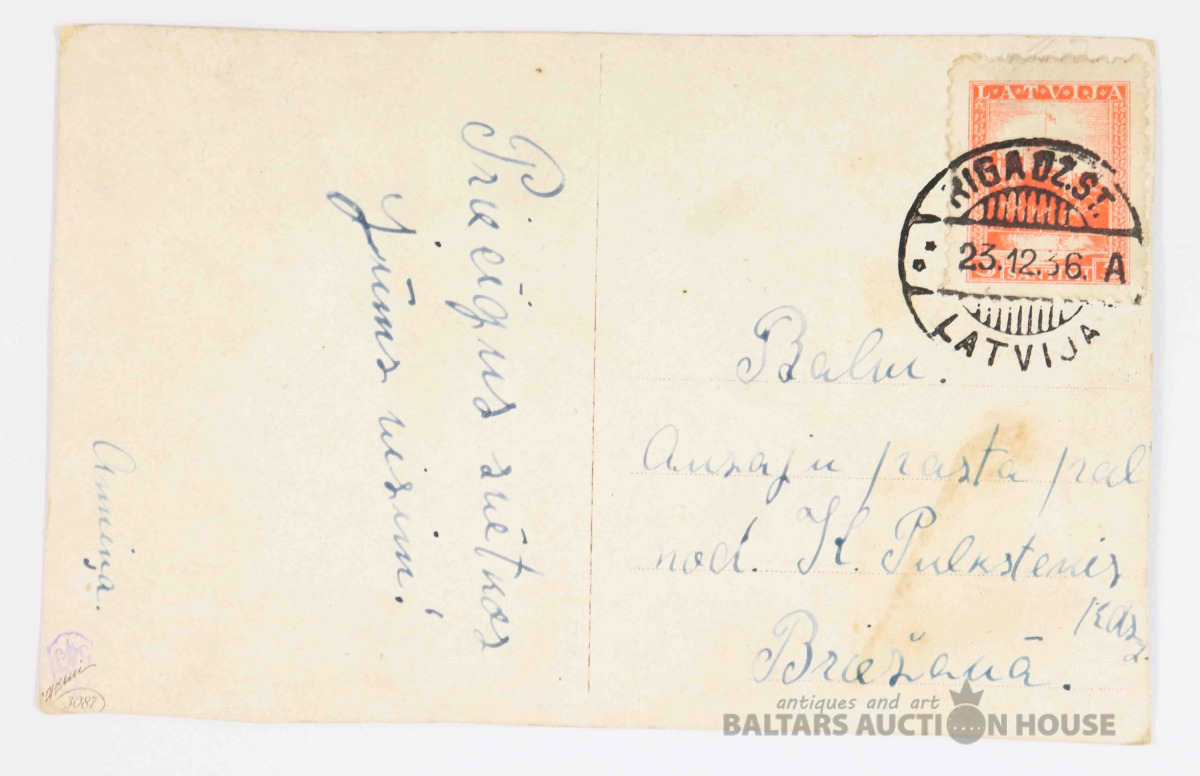 Priecīgus svētkos
Jūms visim!
Anniņa.
3087
LATVIJA
RIGA DZ.ST.
23.12.36. A
LATVIJA
Balvu.
pasta pal
nod. K. Pulkstenis
kdz.
antiques and art
BALTARS AUCTION HOUSE